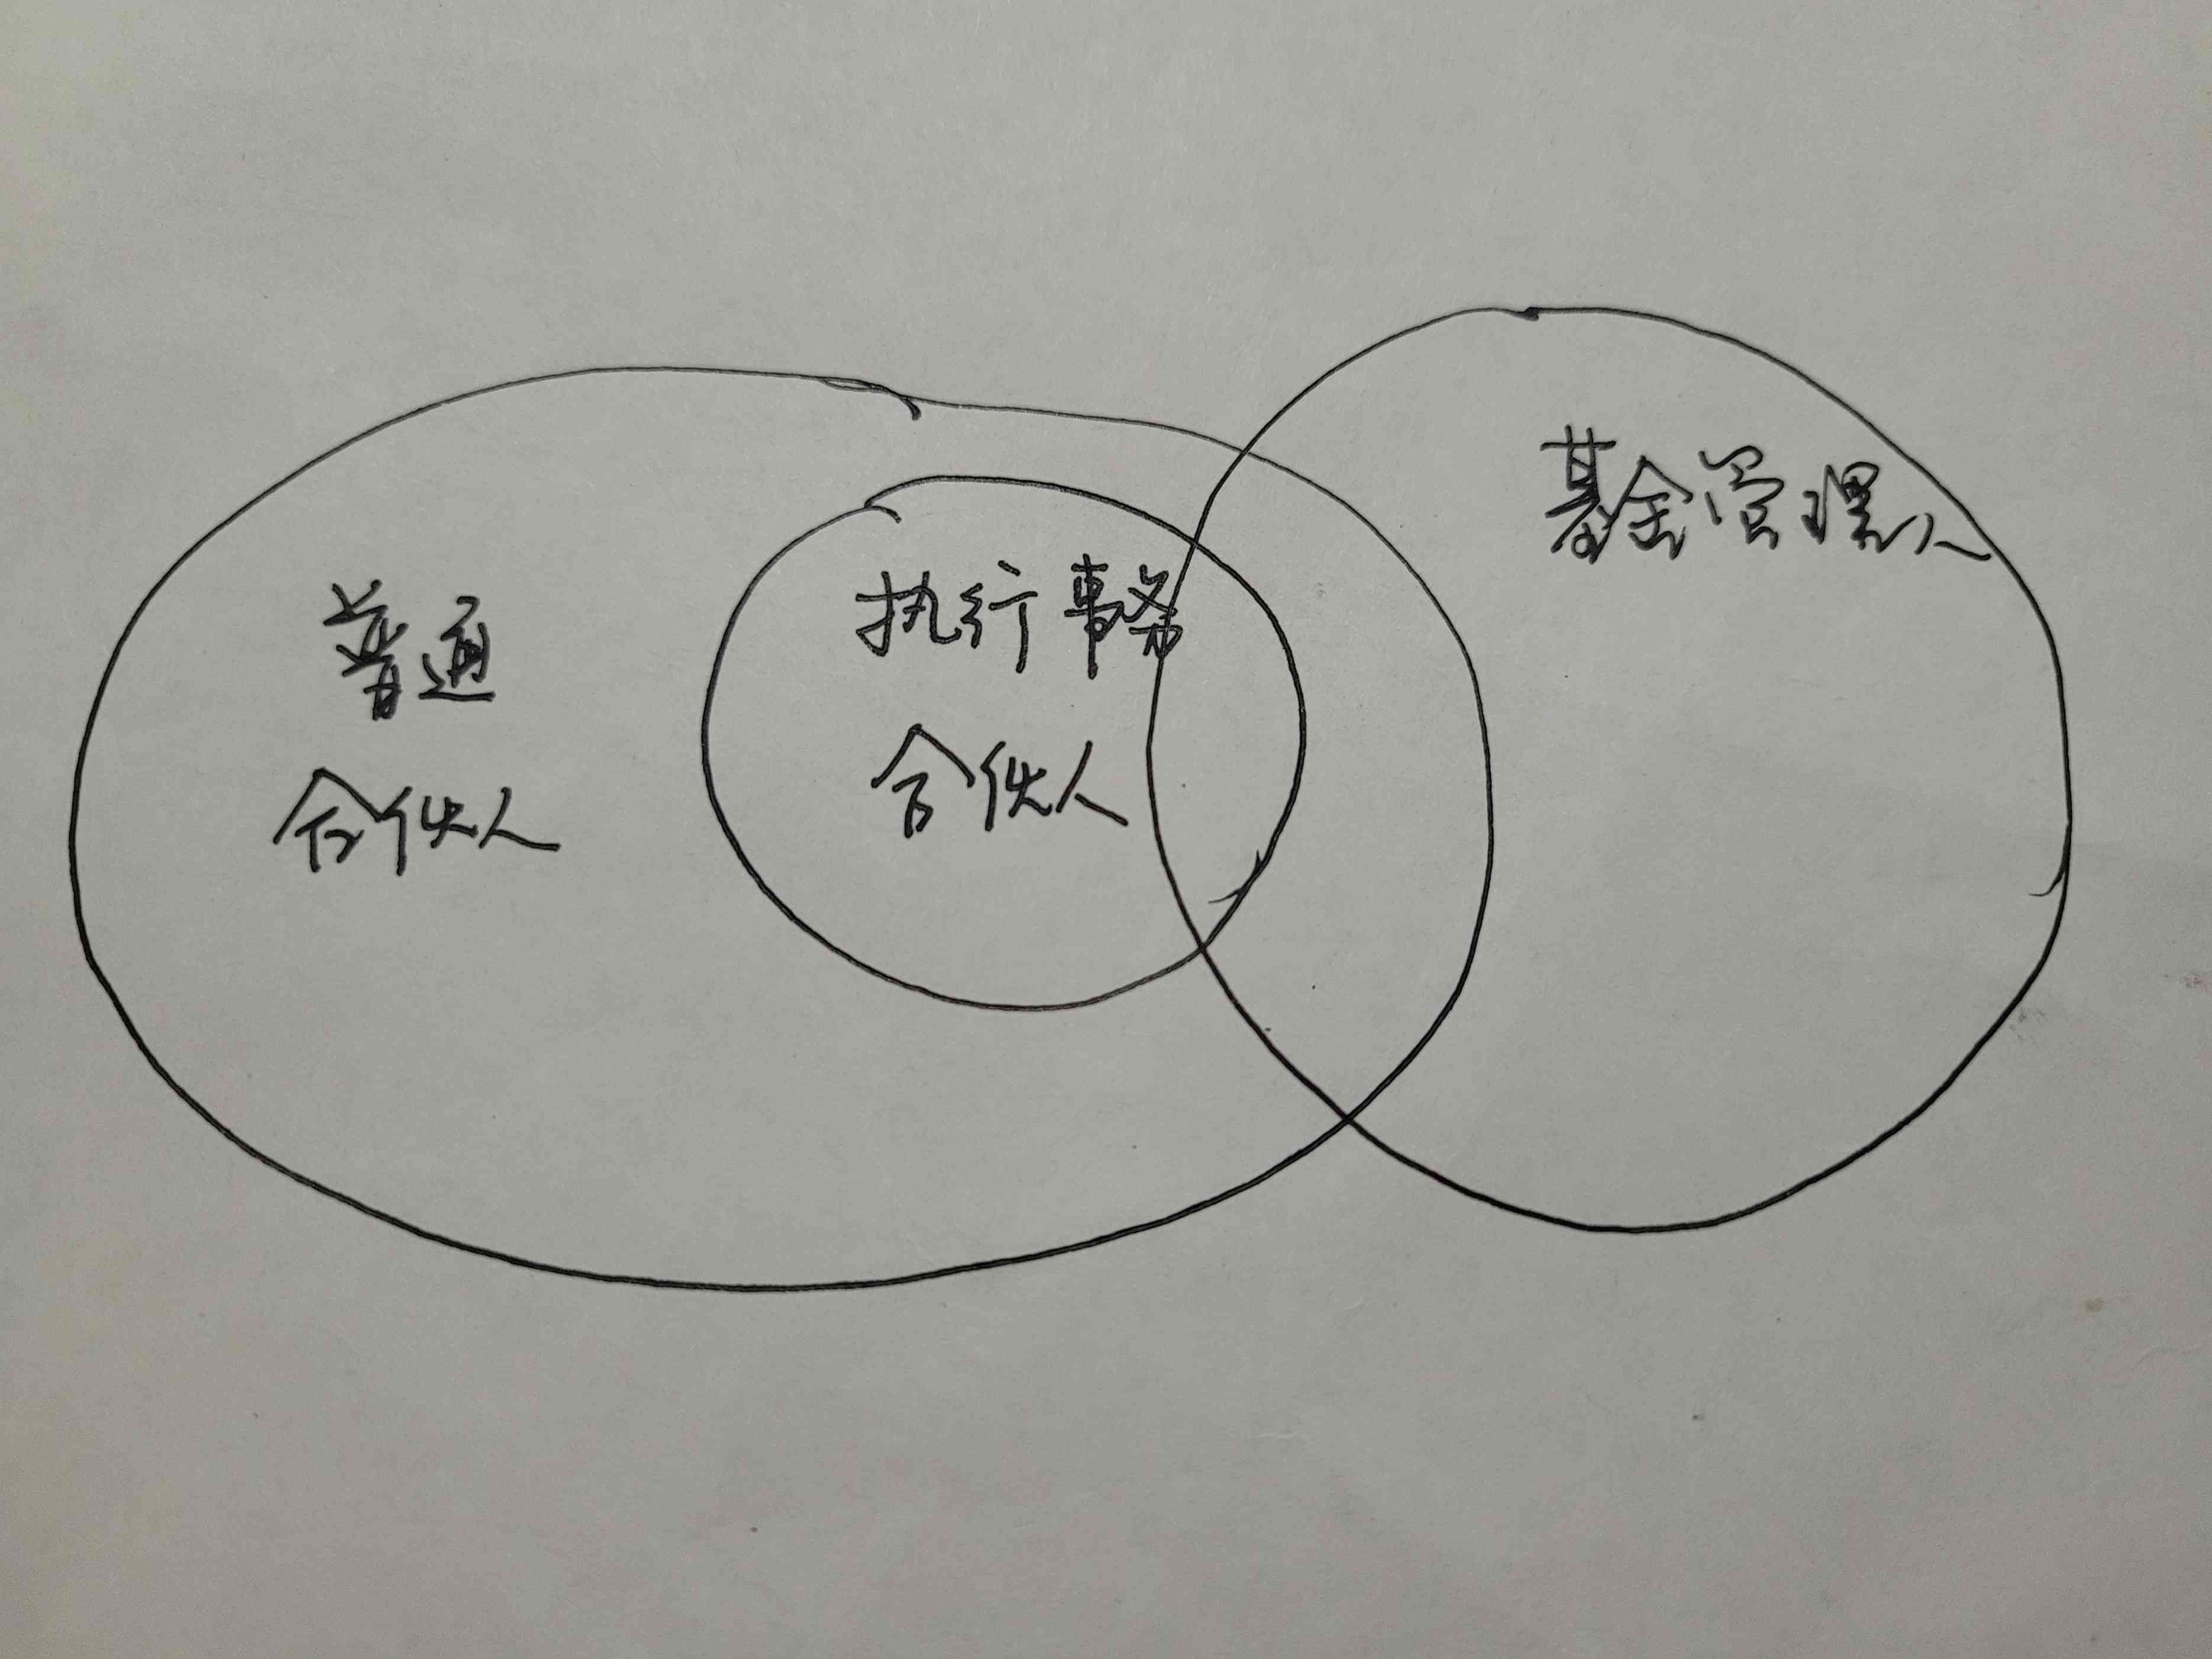 普通
合伙人
执行事务
合伙人
基金管理人